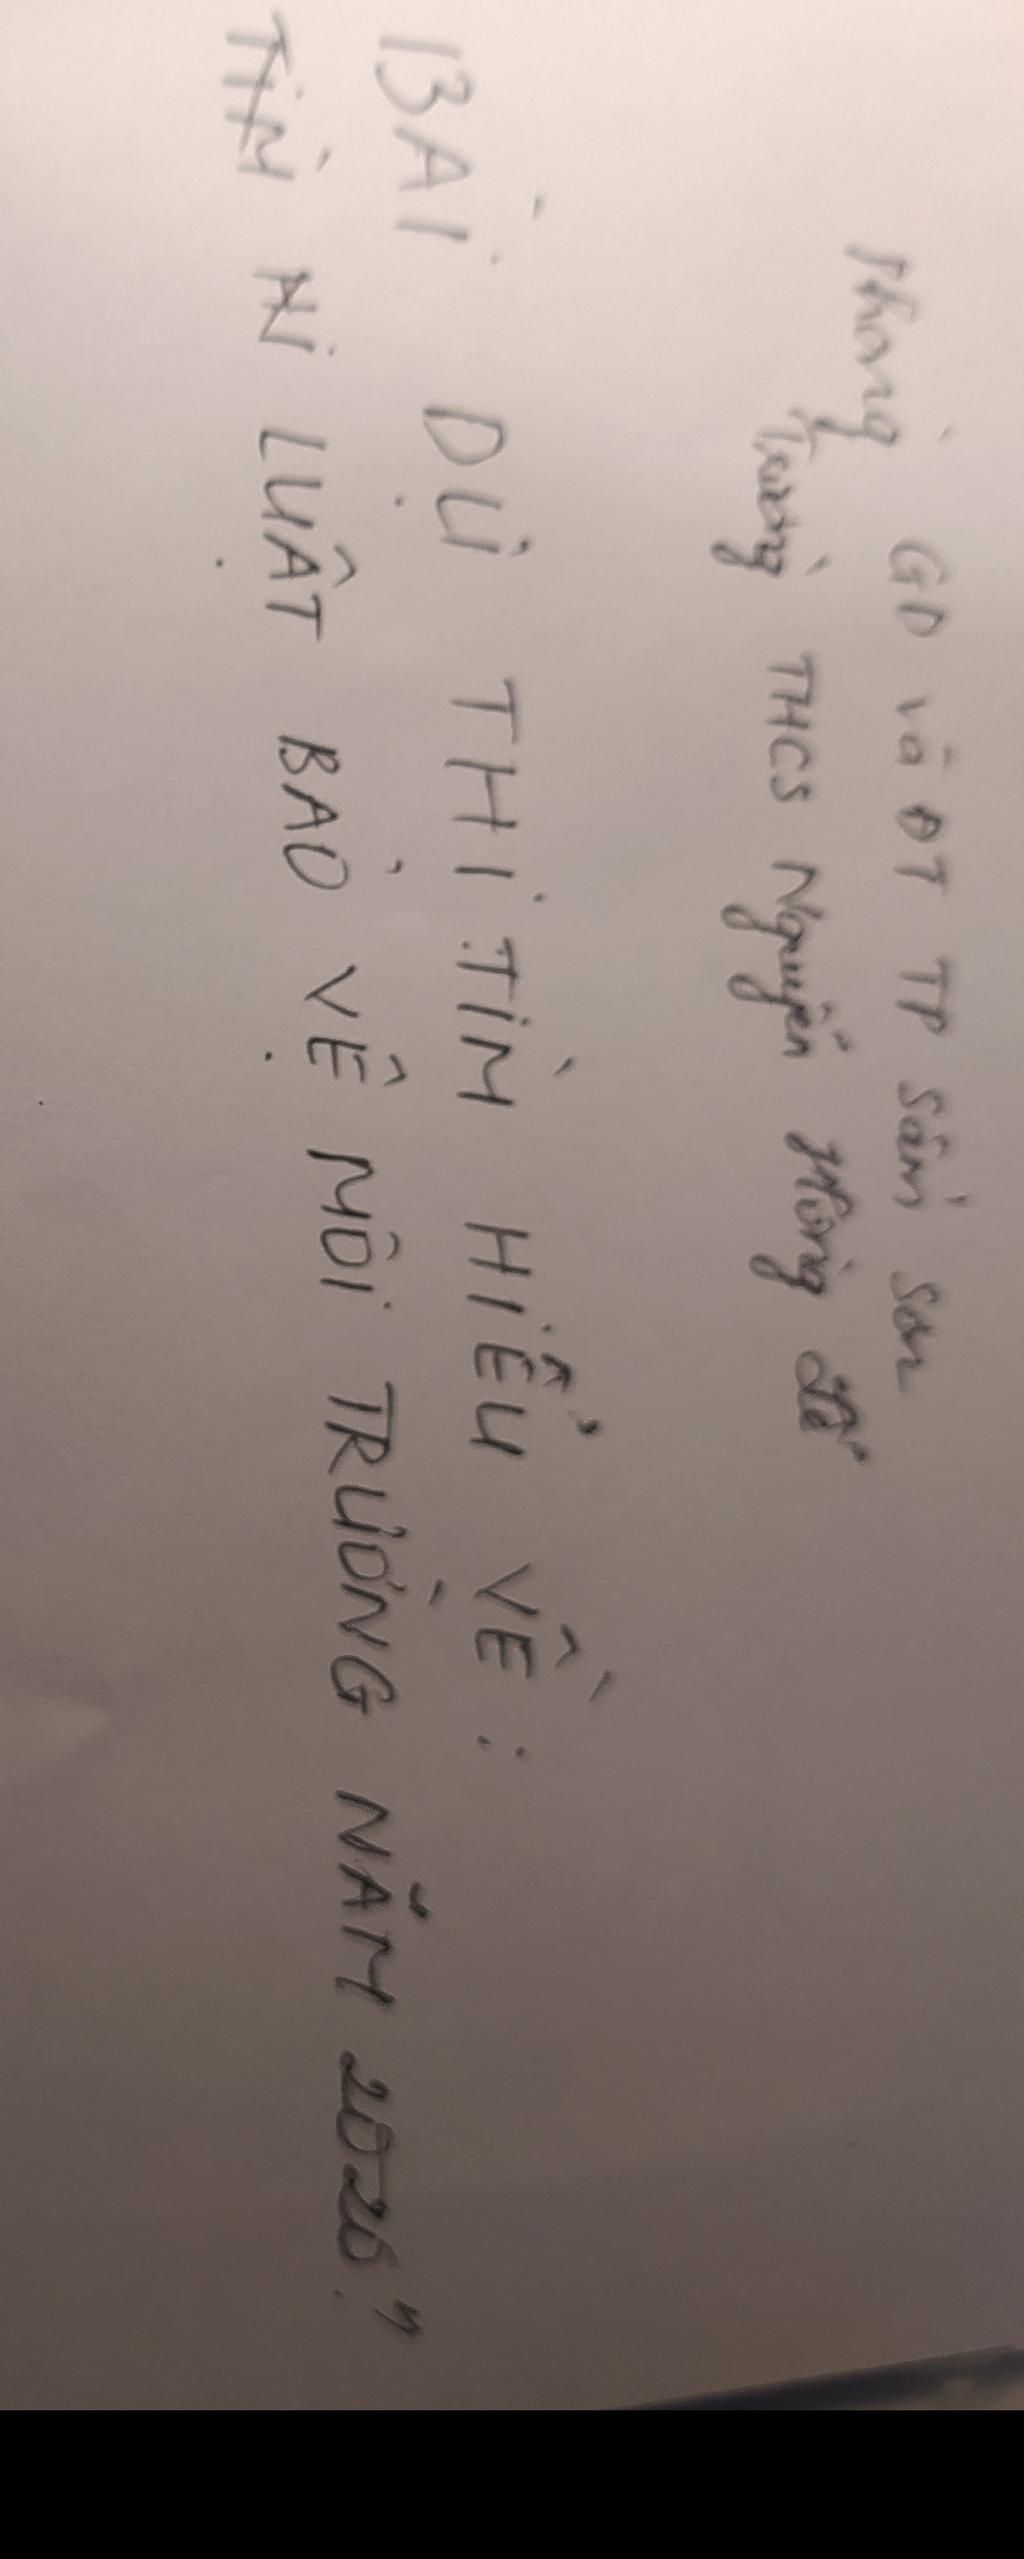 Phòng GD và ĐT TP Sầm Sơn
Trường THCS Nguyễn Hồng Lễ
BÀI DỰ THI TÌM HIỂU VỀ:
LUẬT BẢO VỆ MÔI TRƯỜNG NĂM 2026."